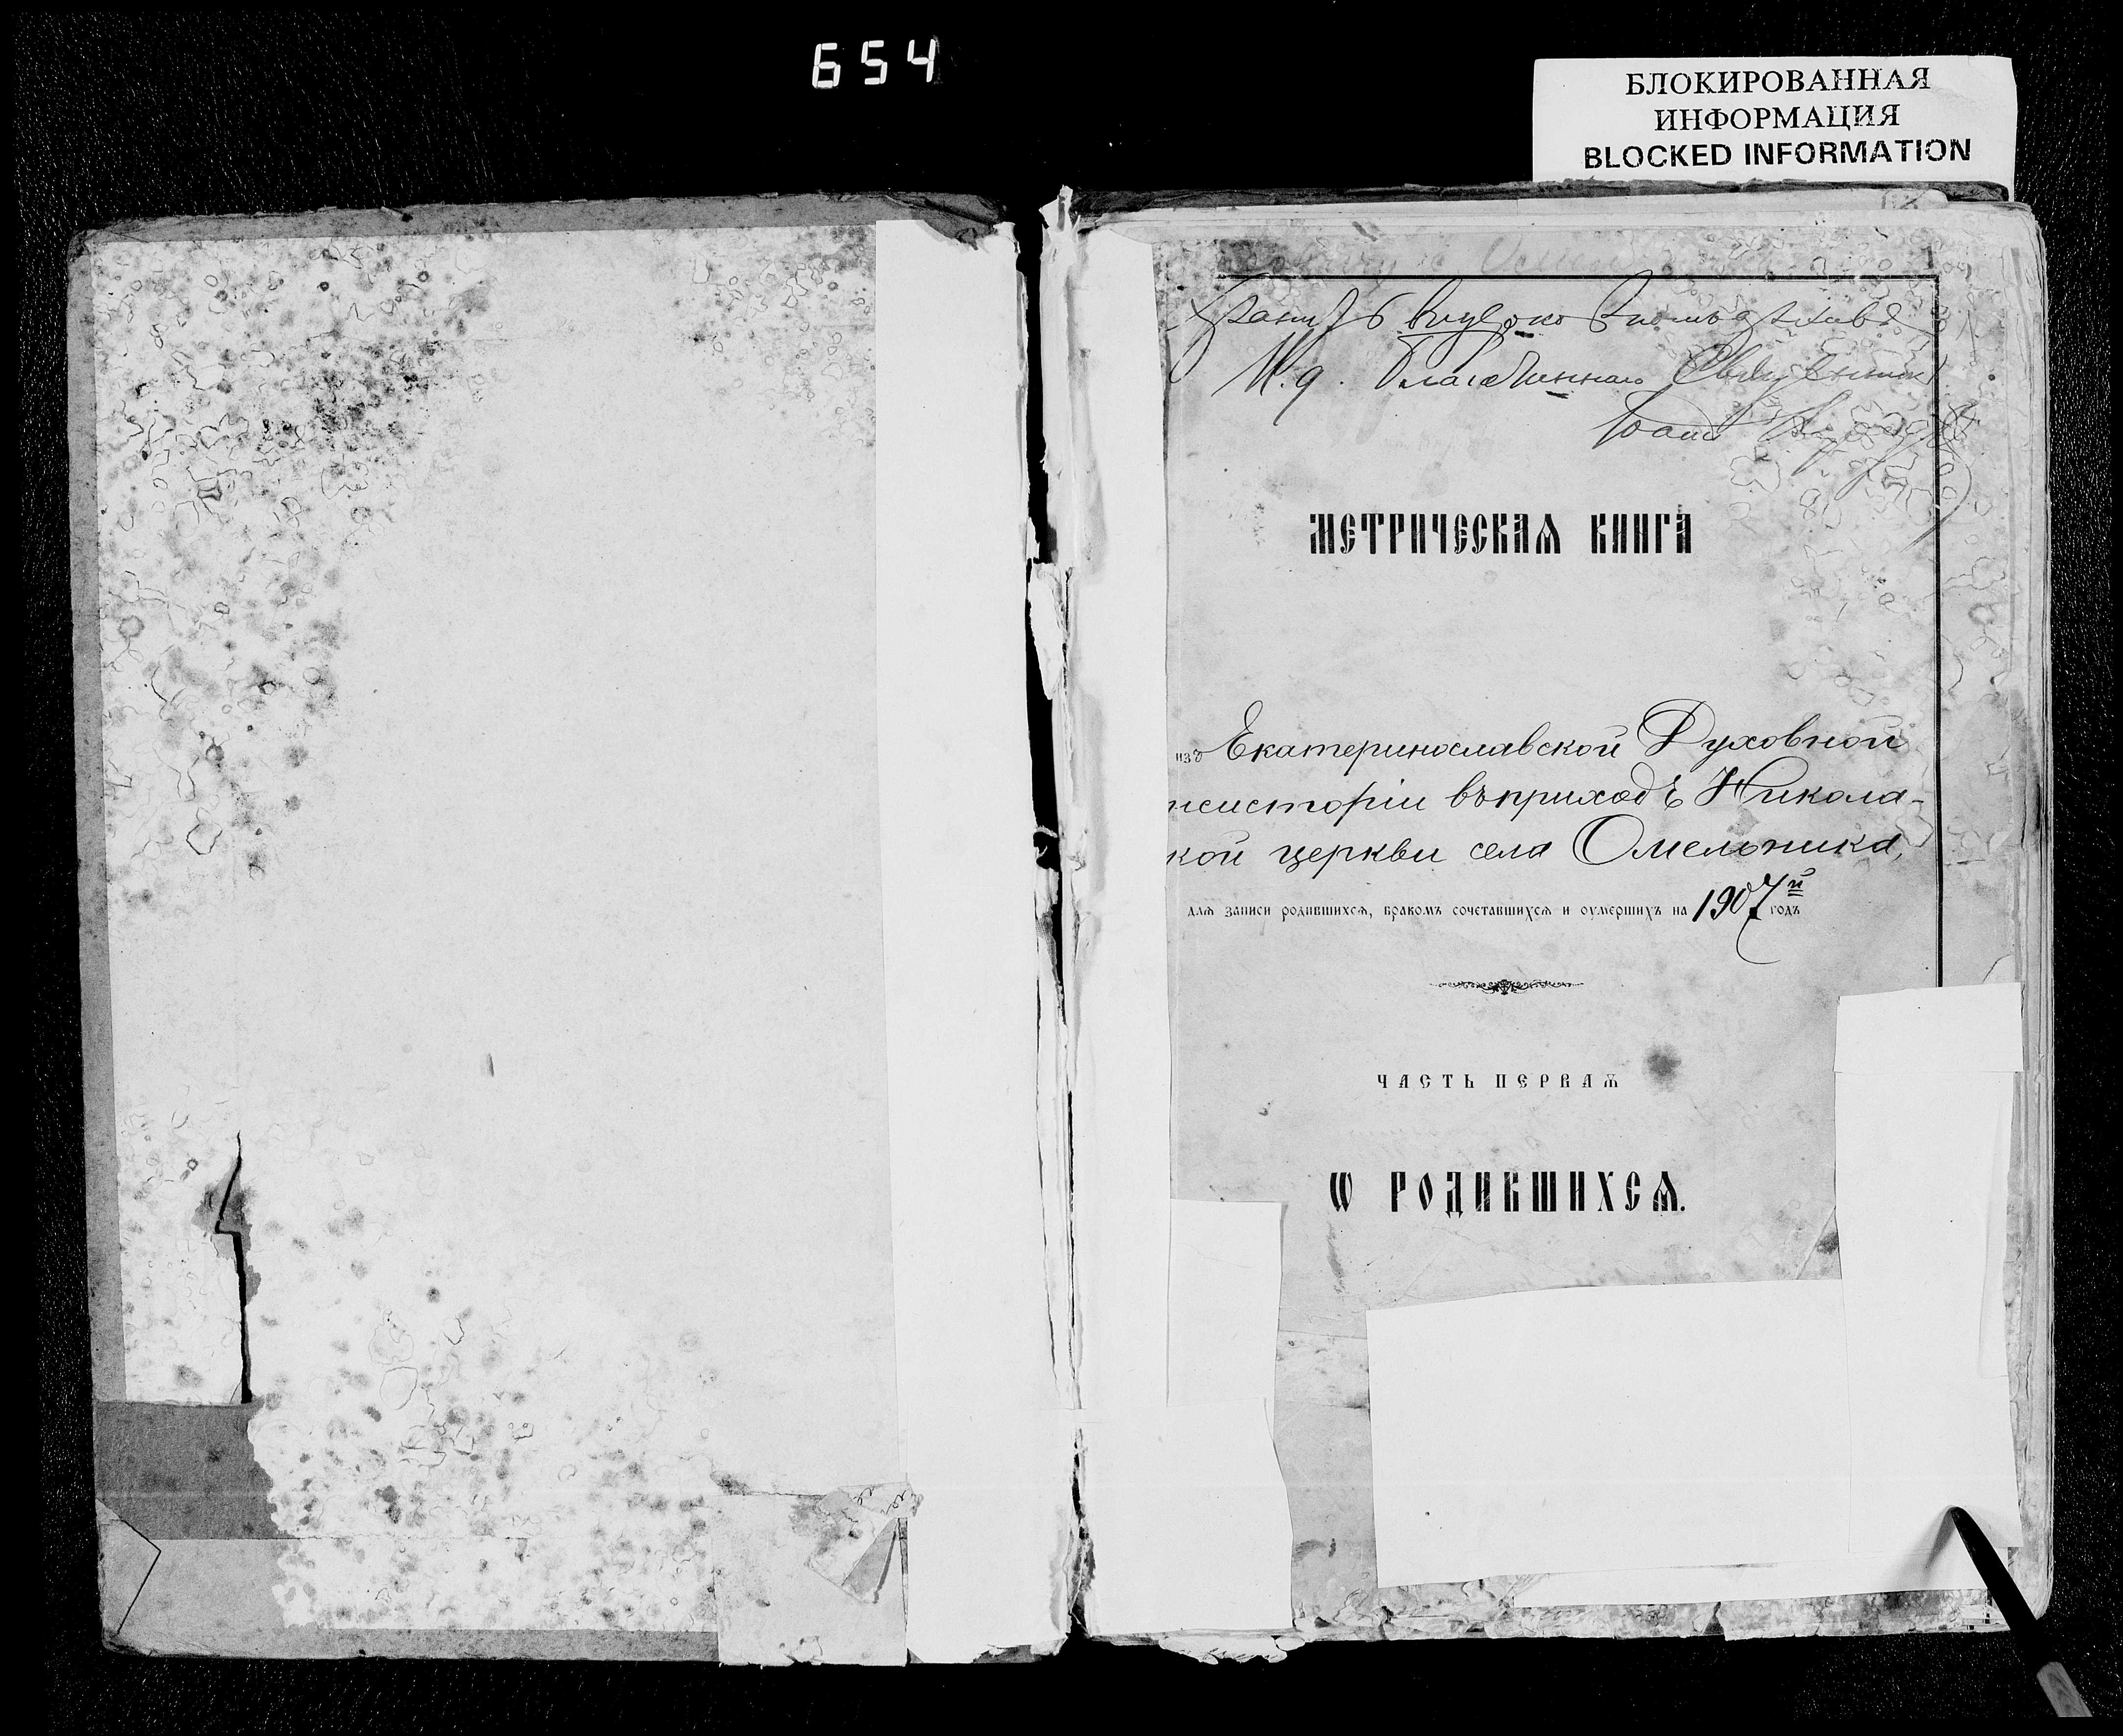 654
БЛОКИРОВАННАЯ
ИНФОРМАЦИЯ
BLOCKED INFORMATION
И. д. Благочиннаго Священникъ
Іоаннъ
МЕТРИЧЕСКАѦ КНИГА
изъ Екатеринославской Духовной
нсисторіи въ приходѣ Никола-
кой церкви села Омельника,
длѧ записи родившихсѧ, бракомъ сочетавшихсѧ и оумершихъ на 1907й годъ
ЧАСТЬ ПЕРВАѦ
Ѡ РОДИВШИХСѦ.